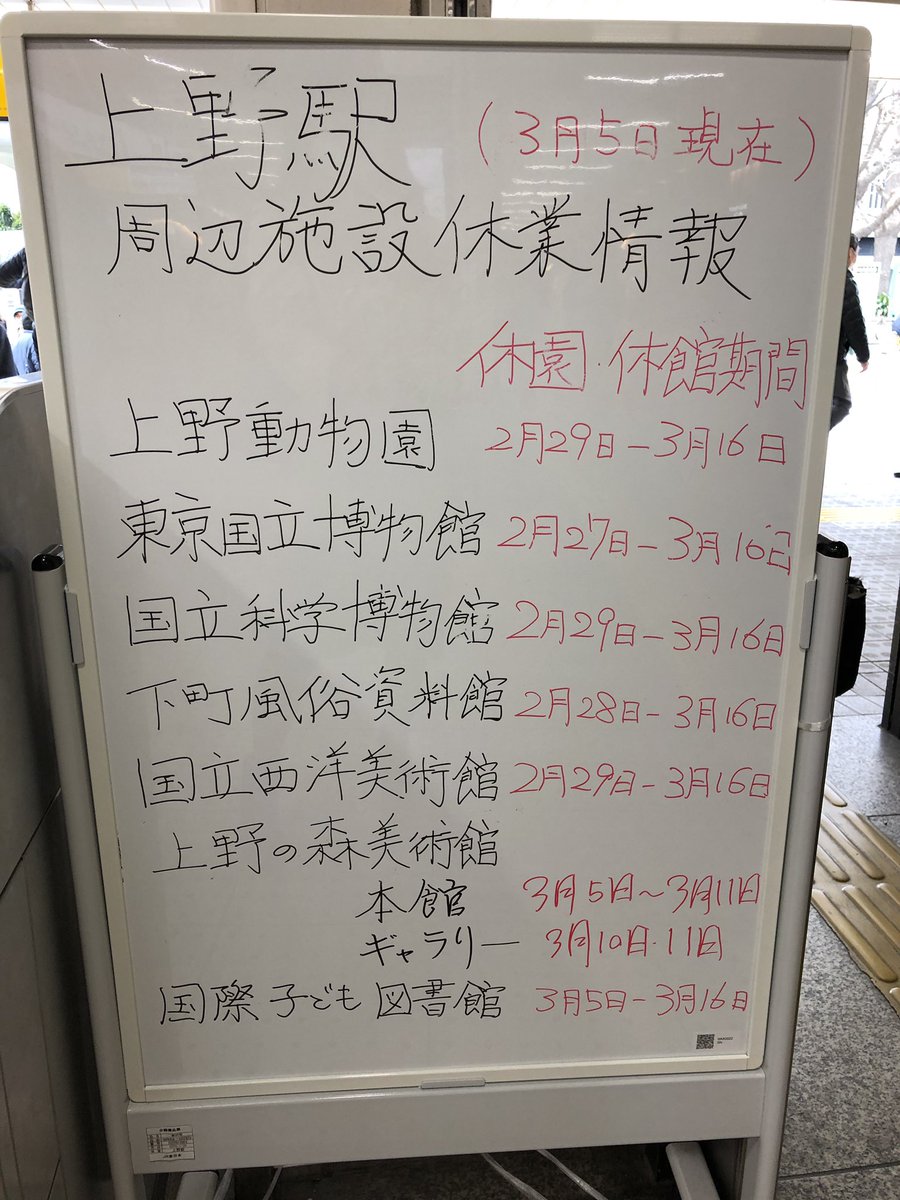 上野駅 (3月5日現在)
周辺施設休業情報
休園・休館期間
上野動物園 2月29日-3月16日
東京国立博物館 2月27日-3月16日
国立科学博物館 2月29日-3月16日
下町風俗資料館 2月28日-3月16日
国立西洋美術館 2月29日-3月16日
上野の森美術館
本館 3月5日~3月11日
ギャラリー 3月10日・11日
国際子ども図書館 3月5日-3月16日